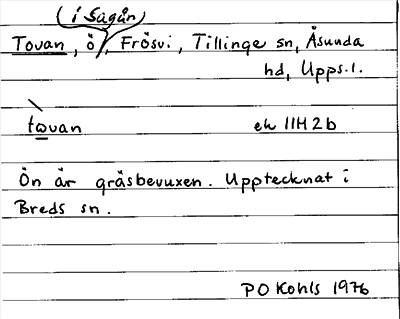 (i Sagån)
Tovan, ö, Frösvi, Tillinge sn, Åsunda
hd, Upps. l.
tovan ek 11H2b
Ön är gräsbevuxen. Upptecknat i
Breds sn.
PO Kohls 1976